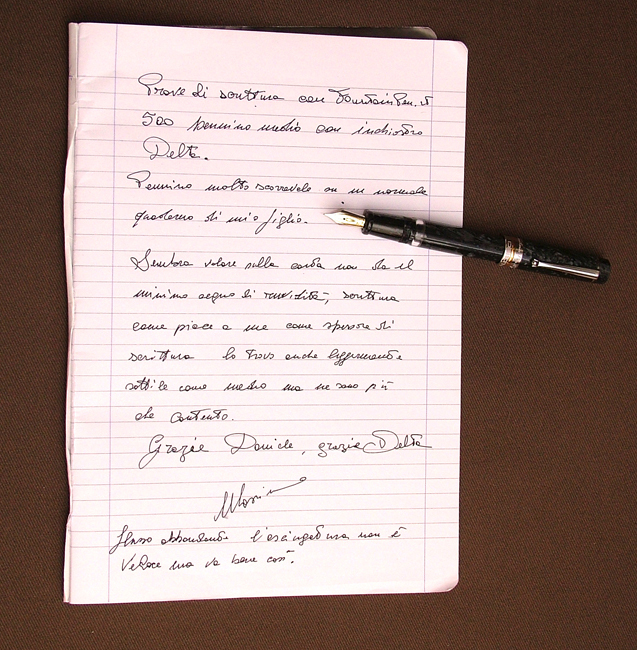 Prove di scrittura con FountainPen.it
500 pennino medio con inchiostro
Delta.
Pennino molto scorrevole su un normale
quaderno di mio figlio.
Sembra volare sulla carta non da il
minimo segno di ruvidità, scrittura
come piace a me come spessore di
scrittura lo trovo anche leggermente
sottile come medio ma ne sono più
che contento.
Grazie Daniele, grazie Delta
Flusso abbondante l'asciugatura non è
veloce ma va bene così.